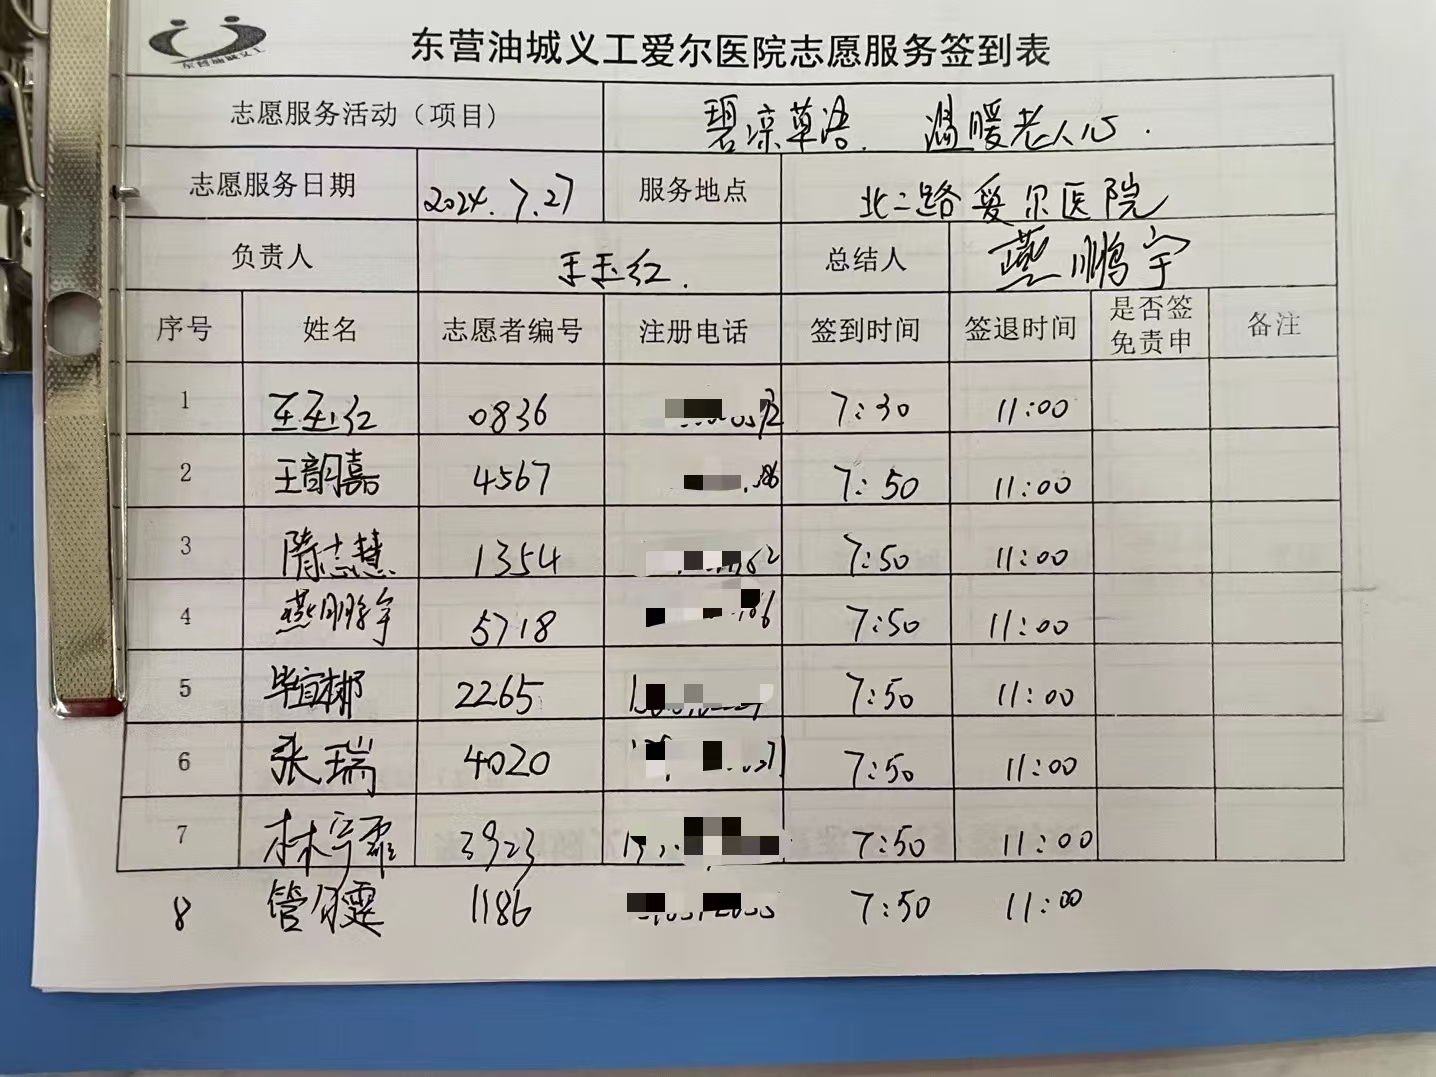 东营油城义工
东营油城义工爱尔医院志愿服务签到表
志愿服务活动（项目） 碧凉草浩. 温暖老人心.
志愿服务日期 2024.7.27 服务地点 北二路爱尔医院
负责人 王玉红. 总结人 燕鹏宇
序号 姓名 志愿者编号 注册电话 签到时间 签退时间 是否签免责申 备注
1 王玉红 0836 7:30 11:00
2 王韵嘉 4567 7:50 11:00
3 隋志慧 1354 7:50 11:00
4 燕鹏宇 5718 7:50 11:00
5 毕宜彬 2265 7:50 11:00
6 张瑞 4020 7:50 11:00
7 林宁霏 3923 7:50 11:00
8 管 霆 1186 7:50 11:00